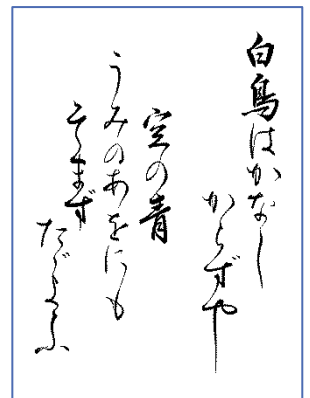 白鳥はかなし
からずや
空の青
うみのあをにも
そまず
たゞよふ